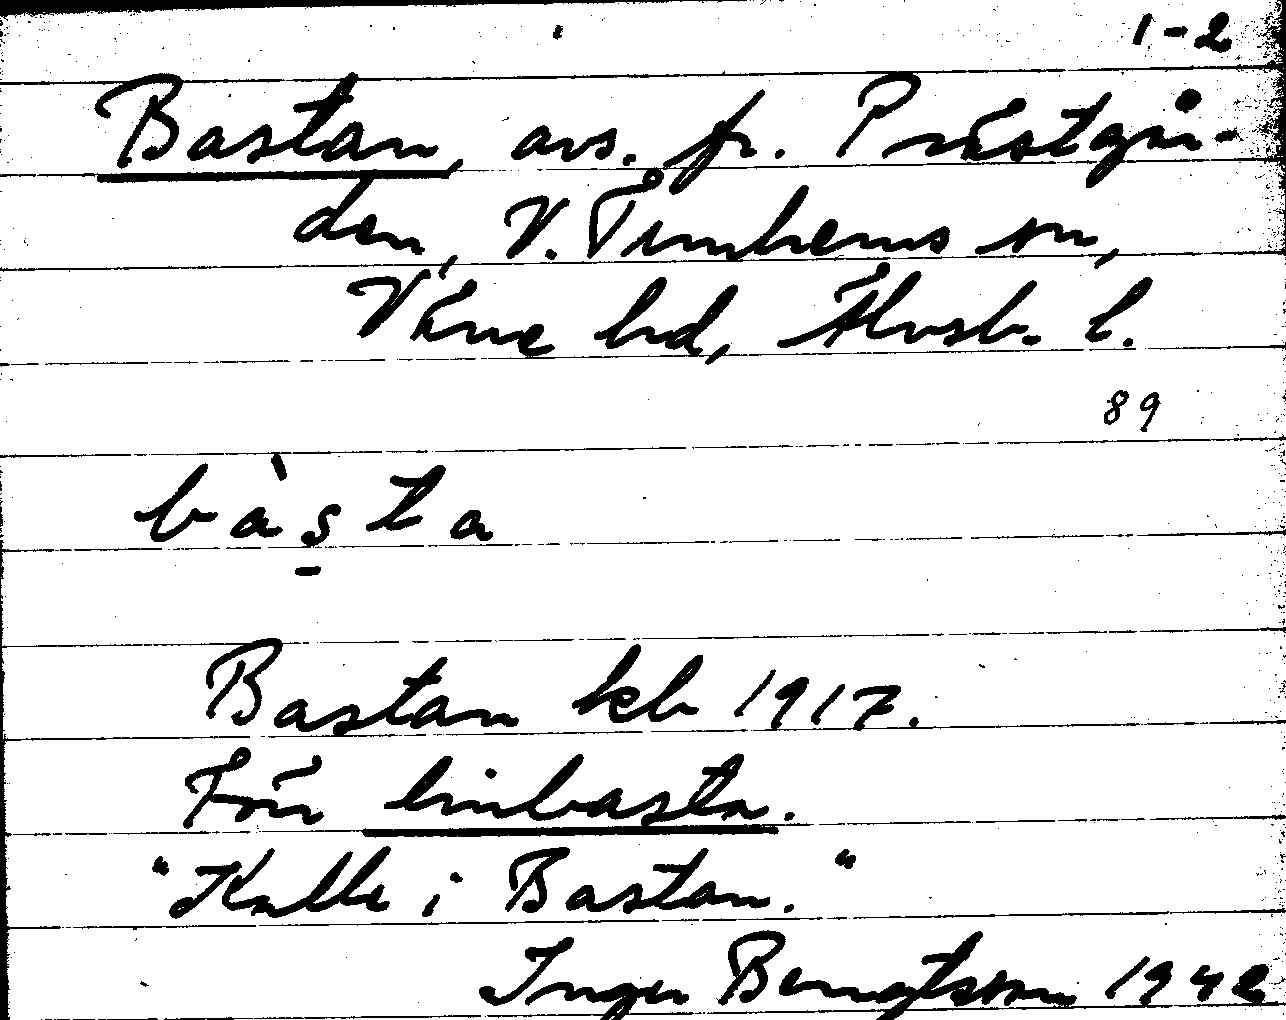 1-2
Bastan, avs. fr. Prästgår-
den, V. Tunhems sn,
Väne hd, Älvsb. l.
89
bàs̠ta
Bastan kb 1917.
Förr linbasta.
"Kalle i Bastan."
Inger Bengtsson 1942